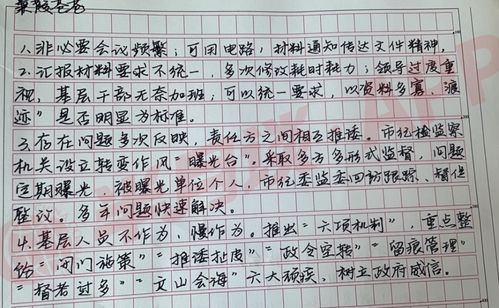 聚凝态态
1.非必要会议频繁;可用电路,材料通知传达文件精神,
2.汇报材料要求不统一,多次修改耗时耗力;领导过度重
视,基层干部无奈加班;可以统一要求,以资料多寡,痕
迹"是否明显为标准。
3.存在问题多次反映,责任方之间相互推诿。市纪检监察
机关设立转变作风"曝光台"。采取多方多形式监督,问题
定期曝光,被曝光单位个人,市纪委监委回访跟踪、督促
整改。多年问题快速解决。
4.基层人员不作为、慢作为。推出"六项机制",重点整
治"闭门施策""推诿扯皮""政令空转""留痕管理"
"督考过多""文山会海"六大顽疾,树立政府威信。